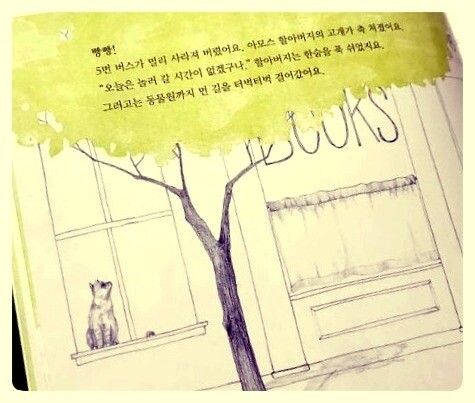 빵빵!
5번 버스가 멀리 사라져 버렸어요. 아모스 할아버지의 고개가 축 처졌어요.
"오늘은 놀러 갈 시간이 없겠구나." 할아버지는 한숨을 푹 쉬었지요.
그러고는 동물원까지 먼 길을 터벅터벅 걸어갔어요.
BOOKS